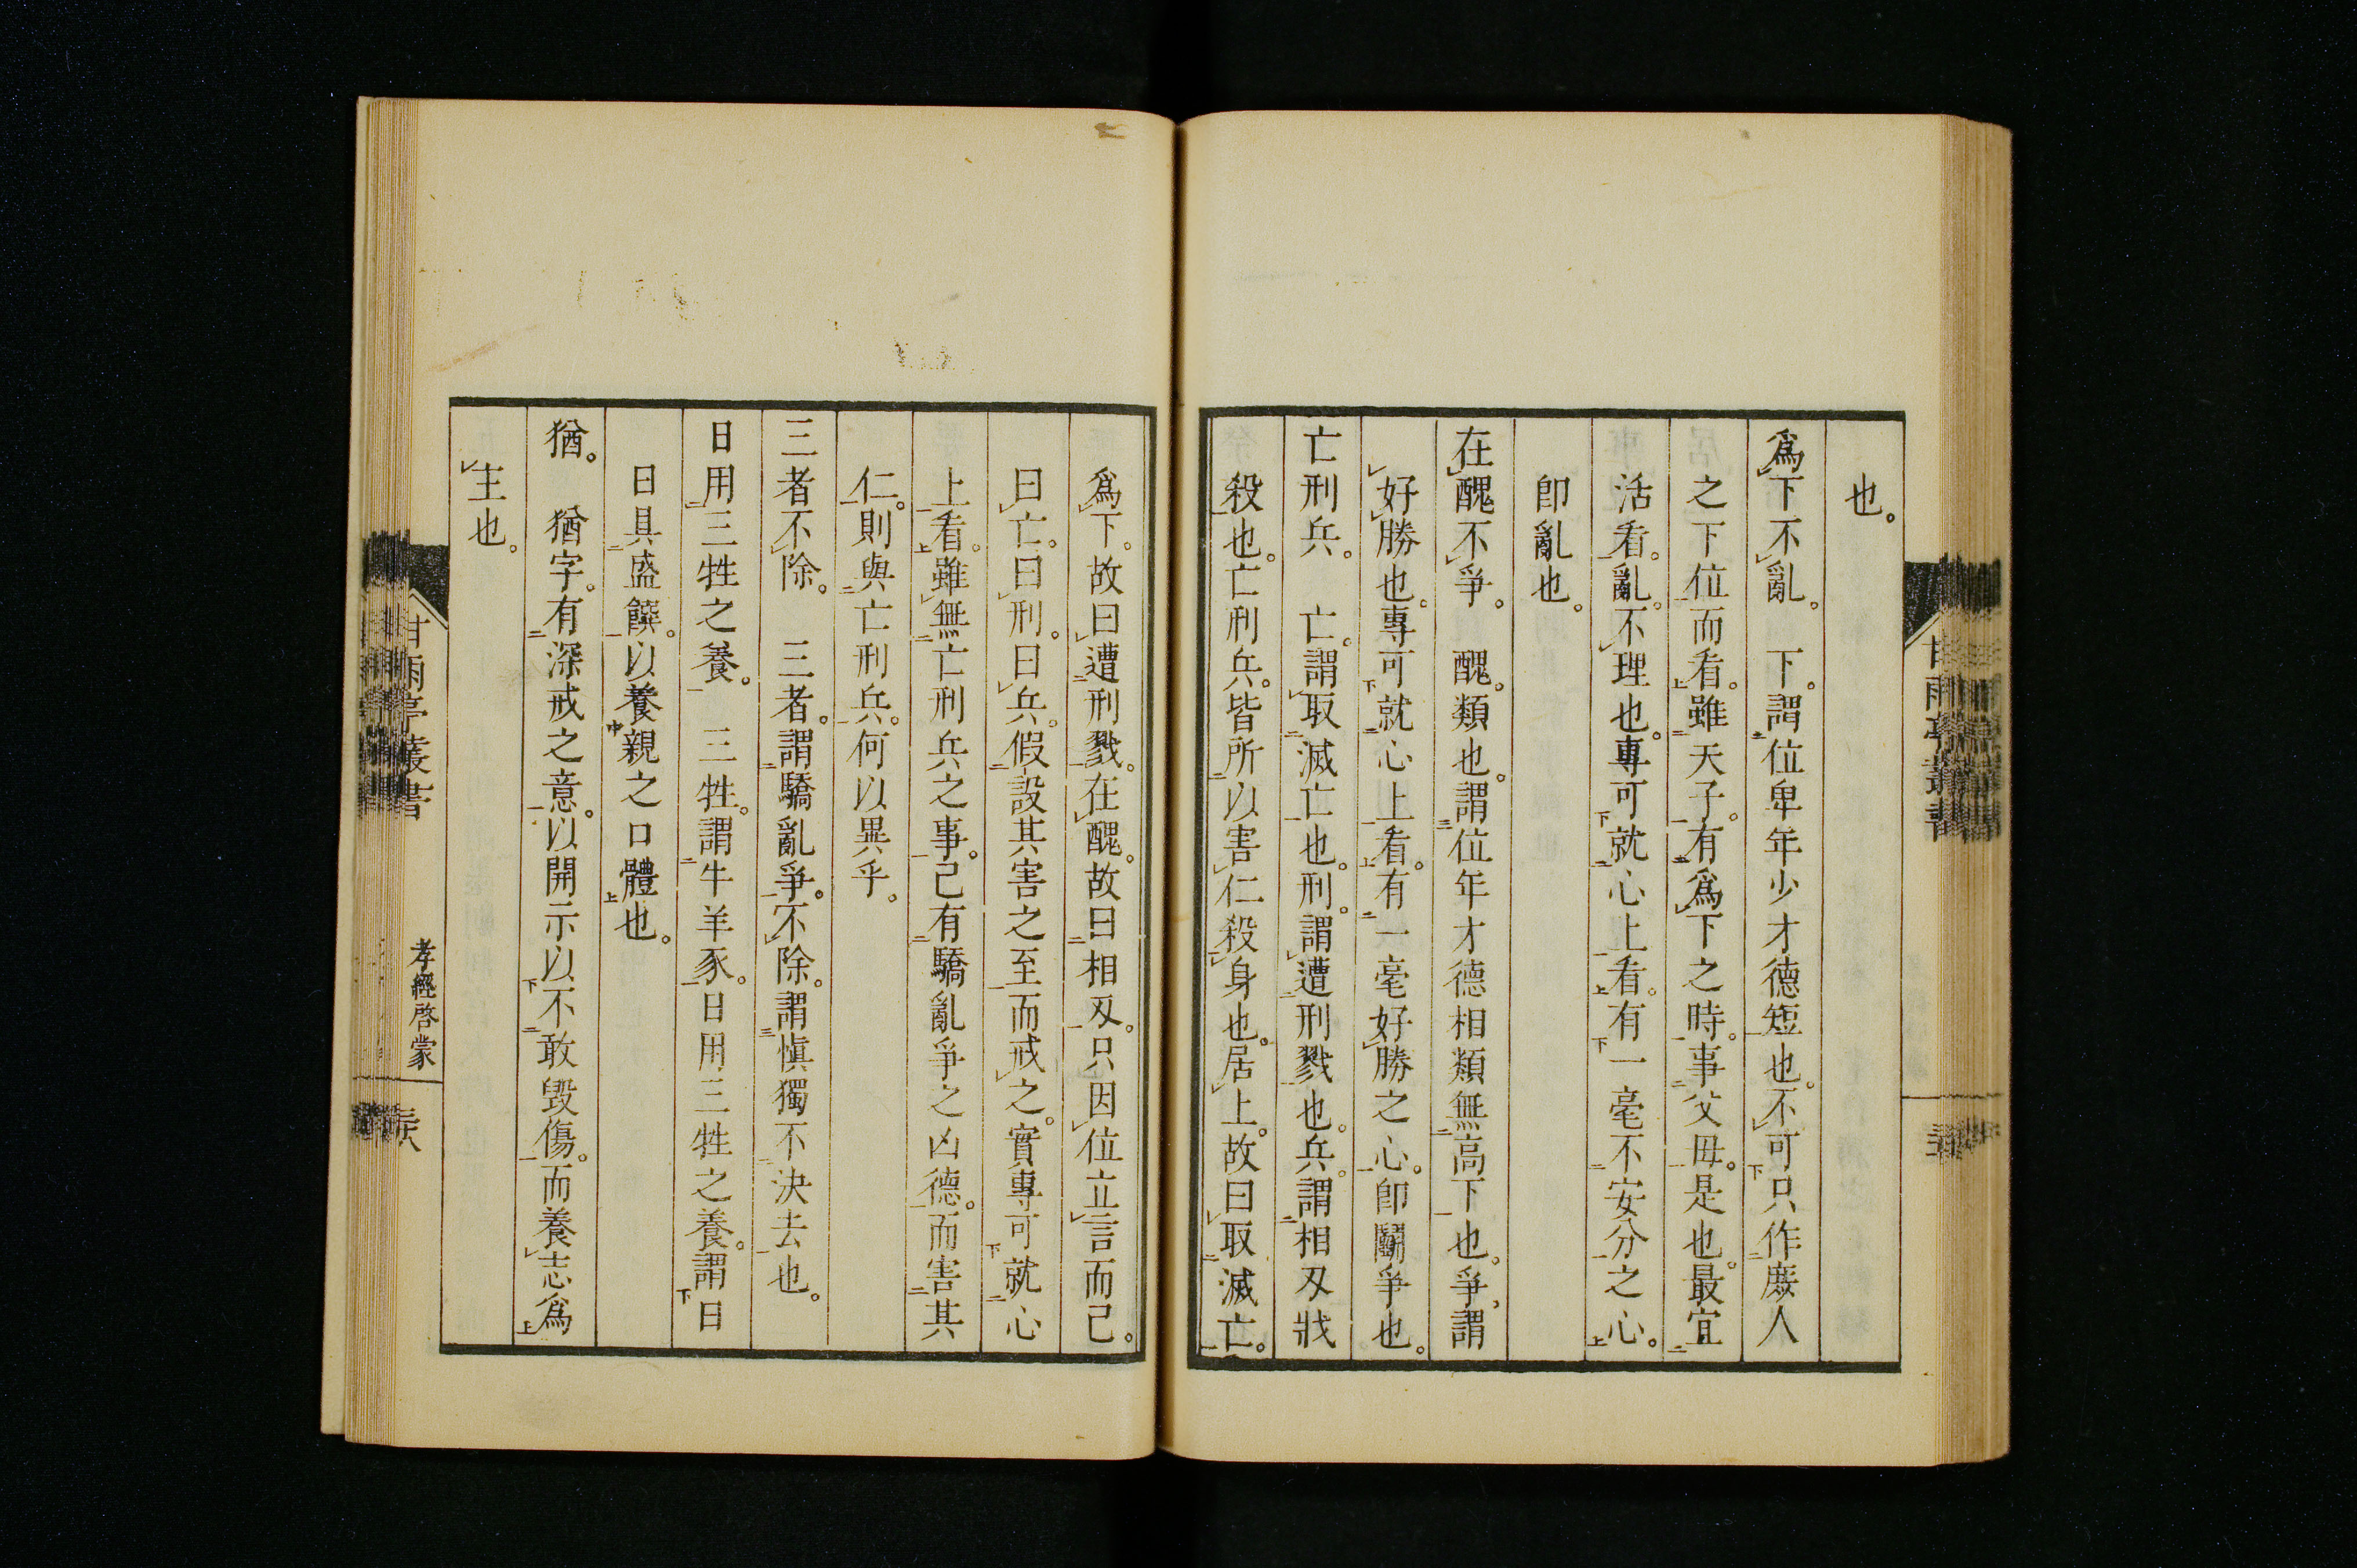 也。
爲下不亂。　下。謂位卑年少才德短也。不可只作庶人
之下位而看。雖天子。有爲下之時。事父母。是也。最宜
活看。亂。不理也。專可就心上看。有一毫不安分之心。
卽亂也。
在醜不爭。　醜。類也。謂位年才德相類無高下也。爭。謂
好勝也。專可就心上看。有一毫好勝之心。卽鬭爭也。
亡刑兵。　亡。謂取滅亡也。刑。謂遭刑戮也。兵。謂相刄戕
殺也。亡刑兵。皆所以害仁殺身也。居上。故曰取滅亡。
爲下。故曰遭刑戮。在醜。故曰相刄。只因位立言而已。
曰亡。曰刑。曰兵。假設其害之至而戒之。實專可就心
上看。雖無亡刑兵之事。已有驕亂爭之凶德。而害其
仁。則與亡刑兵。何以異乎。
三者不除。　三者。謂驕亂爭。不除。謂愼獨不決去也。
日用三牲之養。　三牲。謂牛羊豕。日用三牲之養。謂日
日具盛饌。以養親之口體也。
猶。　猶字。有深戒之意。以開示以不敢毀傷。而養志爲
主也。
甘雨亭叢書
孝經啓蒙